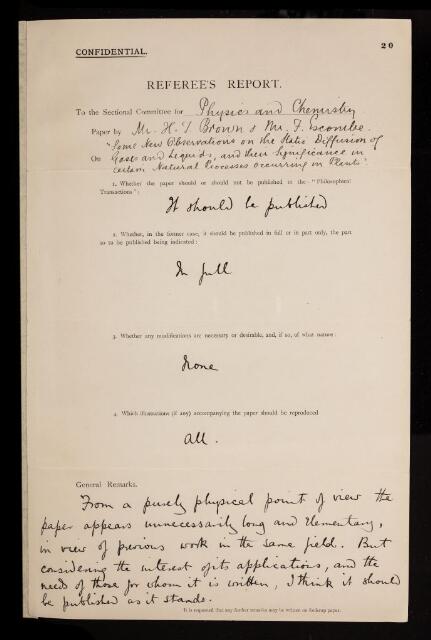 20
CONFIDENTIAL.
REFEREE'S REPORT.
To the Sectional Committee for Physics and Chemistry
Paper by Mr. H. T. Brown & Mr. F. Escombe.
"Some New Observations on the Static Diffusion of
On Gases and Liquids, and their Significance in
certain Natural Processes occurring in Plants".
1. Whether the paper should or should not be published in the "Philosophical
Transactions":
It should be published
2. Whether, in the former case, it should be published in full or in part only, the part
so to be published being indicated:
In full
3. Whether any modifications are necessary or desirable, and, if so, of what nature:
None
4. Which illustrations (if any) accompanying the paper should be reproduced
All.
General Remarks.
From a purely physical point of view the
paper appears unnecessarily long and elementary,
in view of previous work in the same field. But
considering the interest of its applications, and the
needs of those for whom it is written, I think it should
be published as it stands.
It is requested that any further remarks may be written on foolscap paper.